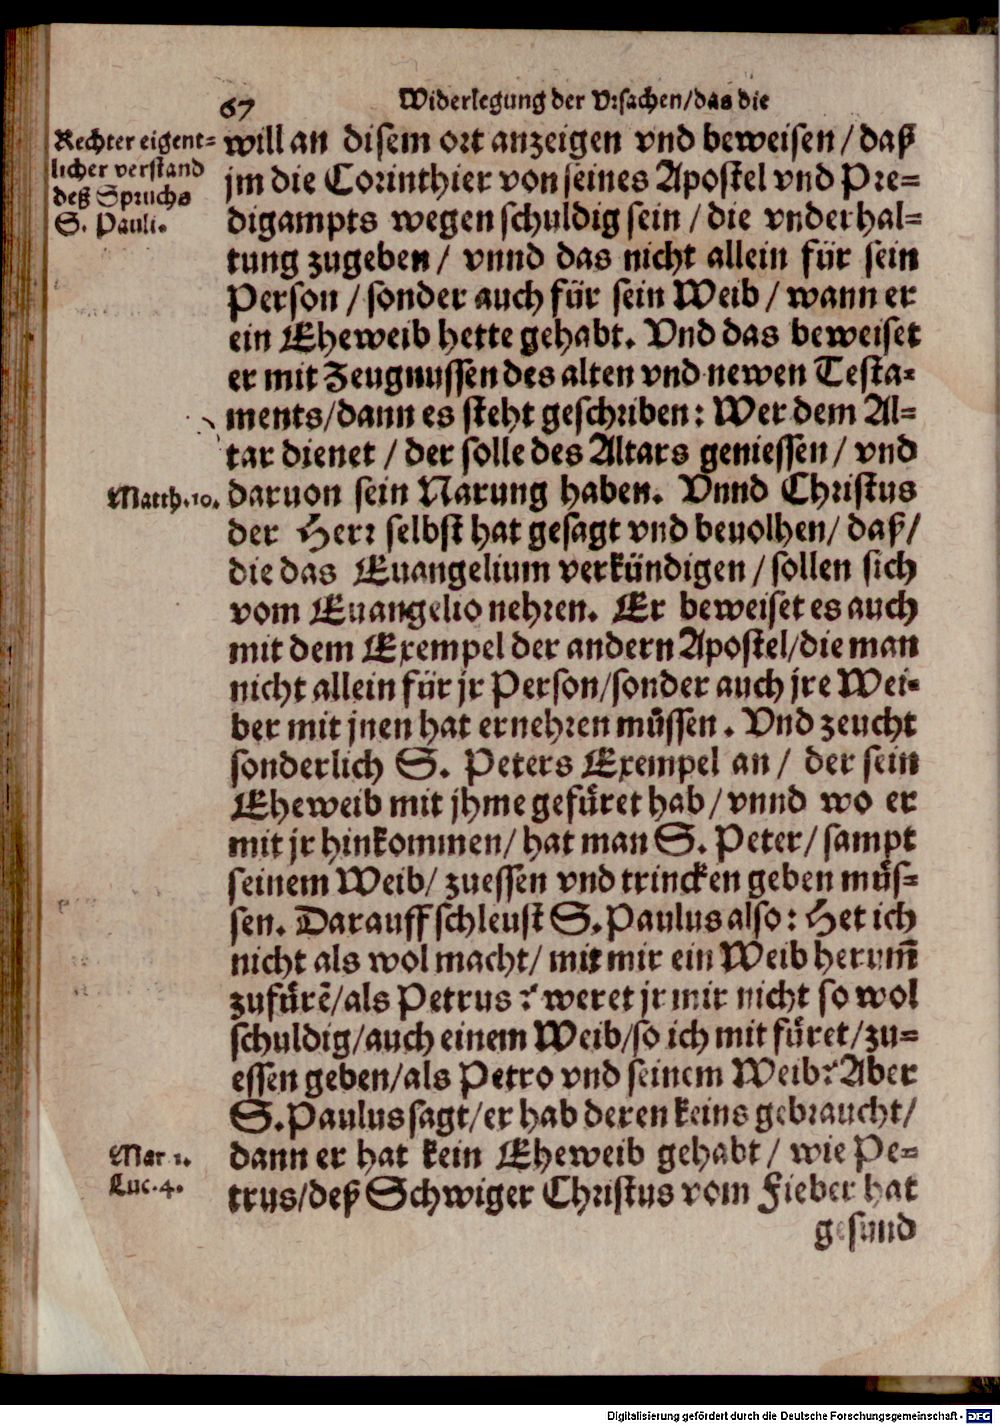 67
Widerlegung der Vrsachen/das die
Rechter eigent=
licher verstand
deß Spruchs
S. Pauli.
will an disem ort anzeigen vnd beweisen / daß
jm die Corinthier von seines Apostel vnd Pre=
digampts wegen schuldig sein / die vnderhal=
tung zugeben / vnnd das nicht allein für sein
Person / sonder auch für sein Weib / wann er
ein Eheweib hette gehabt. Vnd das beweiset
er mit Zeugnussen des alten vnd newen Testa=
ments/dann es steht geschriben: Wer dem Al=
tar dienet / der solle des Altars geniessen / vnd
Matth.10.
daruon sein Narung haben. Vnnd Christus
der Herr selbst hat gesagt vnd beuolhen/ daß/
die das Euangelium verkündigen / sollen sich
vom Euangelio nehren. Er beweiset es auch
mit dem Exempel der andern Apostel/die man
nicht allein für jr Person/sonder auch jre Wei=
ber mit jnen hat ernehren müssen. Vnd zeucht
sonderlich S. Peters Exempel an / der sein
Eheweib mit jhme gefüret hab/ vnnd wo er
mit jr hinkommen/ hat man S. Peter/ sampt
seinem Weib/ zuessen vnd trincken geben müs=
sen. Darauff schleust S. Paulus also: Het ich
nicht als wol macht/ mit mir ein Weib herum̃
zufürẽ/als Petrus? weret jr mir nicht so wol
schuldig/auch einem Weib/so ich mit füret/zu=
essen geben/als Petro vnd seinem Weib? Aber
S. Paulus sagt/er hab deren keins gebraucht/
Mar 1.
Luc. 4.
dann er hat kein Eheweib gehabt / wie Pe=
trus/deß Schwiger Christus vom Fieber hat
gesund
Digitalisierung gefördert durch die Deutsche Forschungsgemeinschaft - DFG